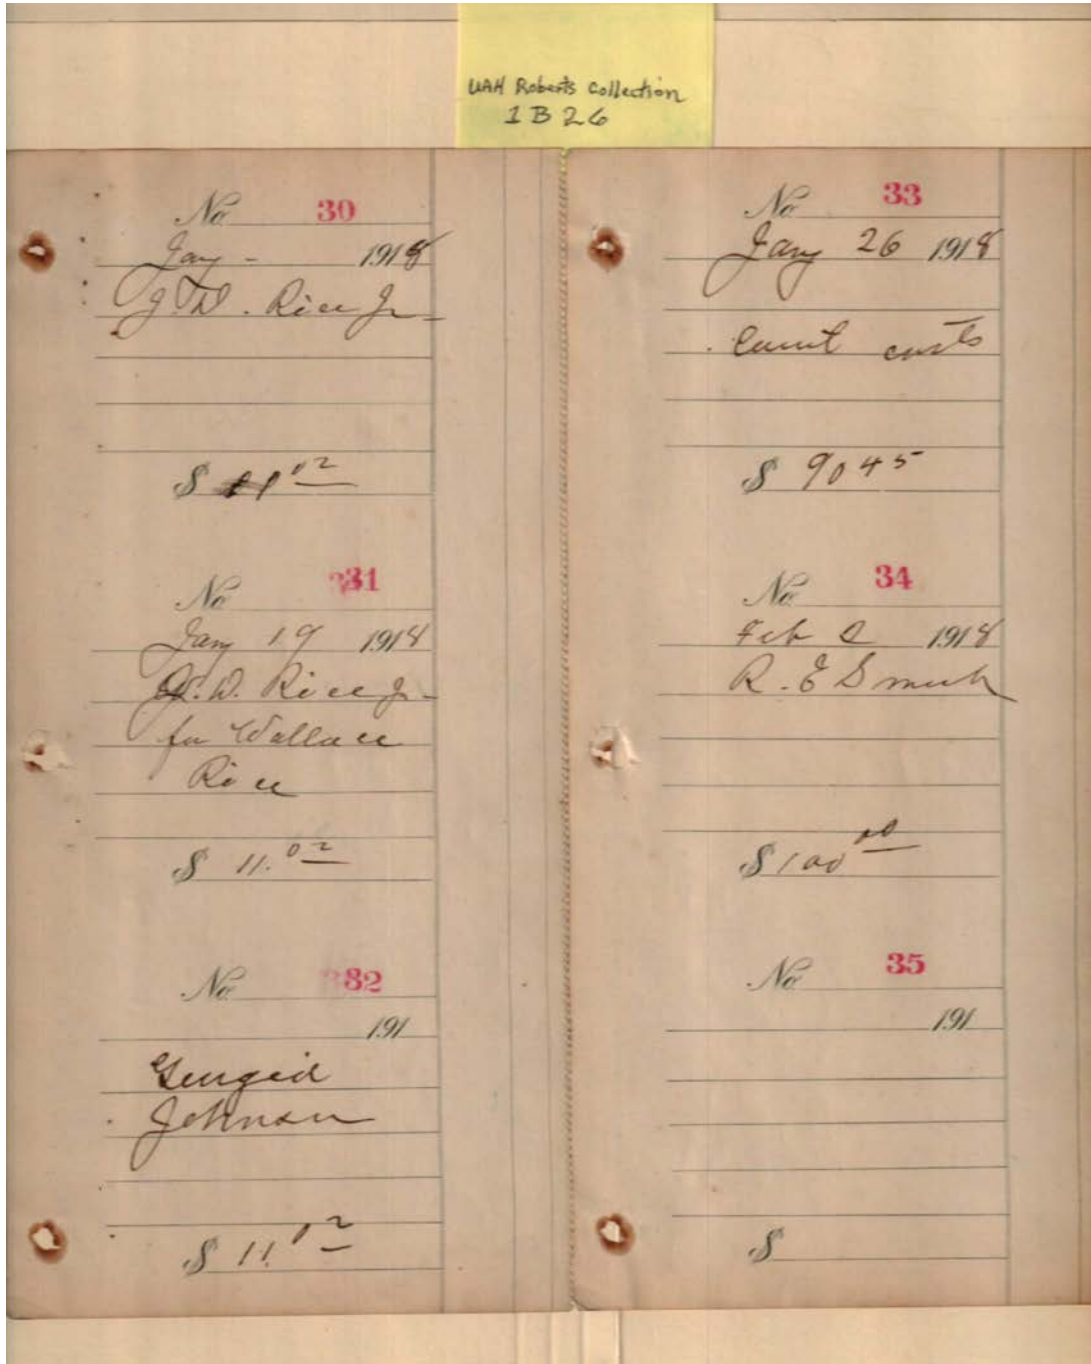 UAH Roberts Collection
1 B 26
No 30
Jany - 1918
J.W. Rice Jr
$ 11 02
No 31
Jany 19 1918
J.W. Rice Jr
for Wallace
Rice
$ 11. 02
No 32
191
Johnson
$ 11. 02
No 33
Jany 26 1918
Court costs
$ 90 45
No 34
Feb 2 1918
R. E Smith
$ 100 00
No 35
191
$